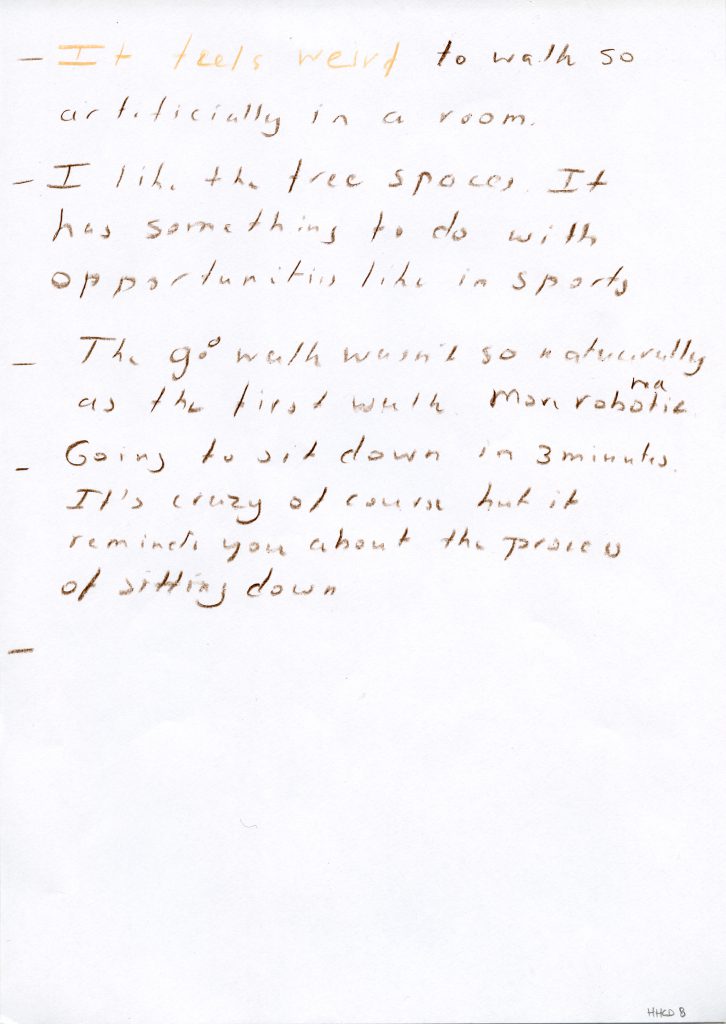 - It feels weird to walk so
artificially in a room.
- I like the free spaces. It
has something to do with
opportunities like in sports
- The 90° walk wasn't so naturually
as the first walk. More robotic
- Going to sit down in 3 minutes.
It's crazy of course but it
reminds you about the process
of sitting down
-
HHCD 8